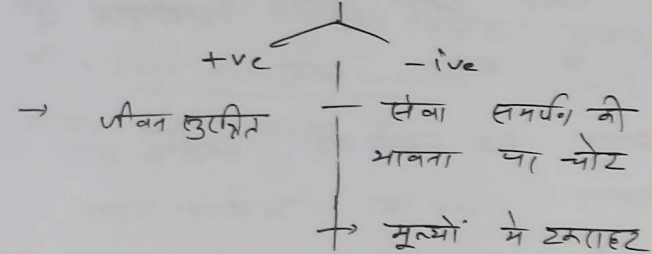 +ve -ive
→ जीवन सुरक्षित — सेवा समर्पण की
भावना पर चोट
→ मूल्यों में टकराहट